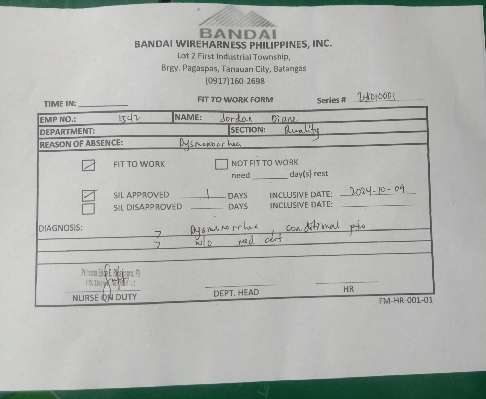 BANDAI
BANDAI WIREHARNESS PHILIPPINES, INC.
Lot 2 First Industrial Township,
Brgy. Pagaspas, Tanauan City, Batangas
(0917)160-2698
TIME IN: FIT TO WORK FORM Series #
EMP NO.: 1342 NAME: Jordan Diane
DEPARTMENT: SECTION: Quality
REASON OF ABSENCE: Dysmenorrhea
FIT TO WORK NOT FIT TO WORK
need day(s) rest
SIL APPROVED 1 DAYS INCLUSIVE DATE: 2024-10-09
SIL DISAPPROVED DAYS INCLUSIVE DATE:
DIAGNOSIS: Dysmenorrhea, conditional
w/o med cert
NURSE ON DUTY DEPT. HEAD HR
FM-HR-001-01